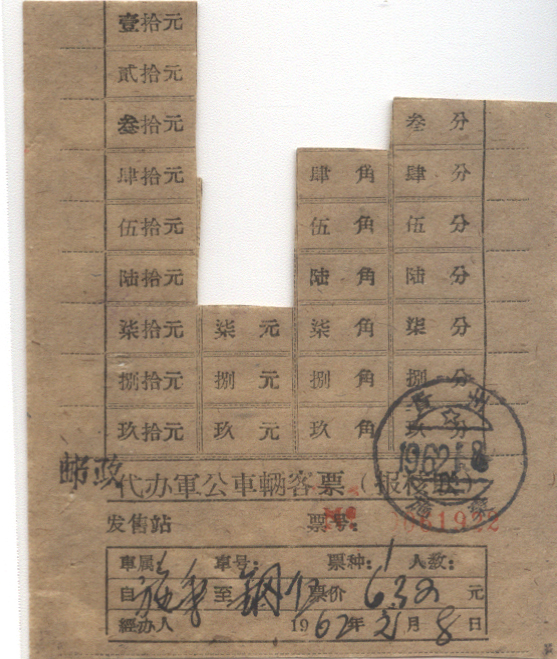 壹拾元
貳拾元
叁拾元 叁分
肆拾元 肆角 肆分
伍拾元 伍角 伍分
陆拾元 陆角 陆分
柒拾元 柒元 柒角 柒分
捌拾元 捌元 捌角 捌分
玖拾元 玖元 玖角 玖分
貴州
1962
邮政代办軍公車輛客票(报核联)
发售站 票号:
車属: 車号: 票种: 1 人数:
自 至 票价 元
經办人 1962年 月8日